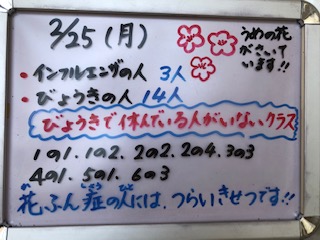 2/25(月)
うめの花
がさいて
います!!
・インフルエンザの人 3人
・びょうきの人 14人
びょうきで休んでいる人がいないクラス
1の1. 1の2. 2の2. 2の4. 3の3
4の1. 5の1. 6の3
花ふん症の人には、つらいきせつです!!